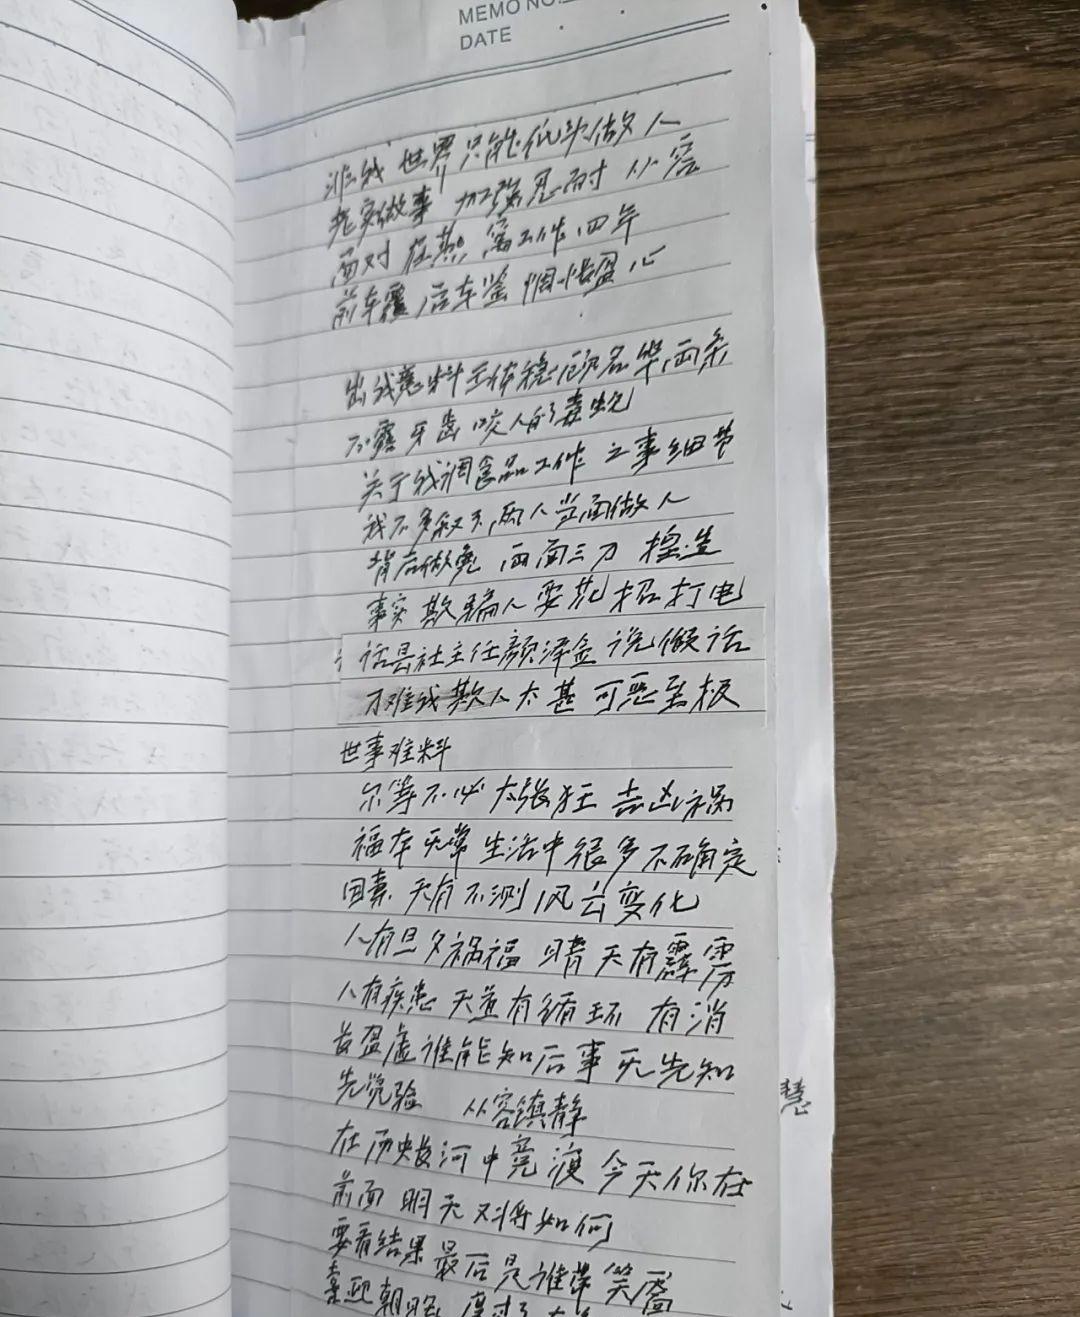 MEMO NO.
DATE
非我世界只能低头做人
老实做事 加强忍耐 从容
面对 在燕窝工作四年
前车覆后车鉴 惆怅盈心
出我意料王体稳 顾名华两条
不露牙齿咬人的毒蛇
关于我调食品工作之事细节
我不多叙了,两人当面做人
背后做鬼 两面三刀 捏造
事实 欺骗人 耍花招 打电
话县社主任颜泽金说假话
刁难我 欺人太甚 可恶至极
世事难料
尔等不必太张狂 吉凶祸
福本无常 生活中很多不确定
因素 天有不测风云变化
人有旦夕祸福 晴天有霹雳
人有疾患 天道有循环 有消
长盈虚谁能知后事 无先知
先觉验 从容镇静
在历史长河中竞渡 今天你在
前面 明天又将如何
要看结果 最后是谁带笑靥
慧
朝